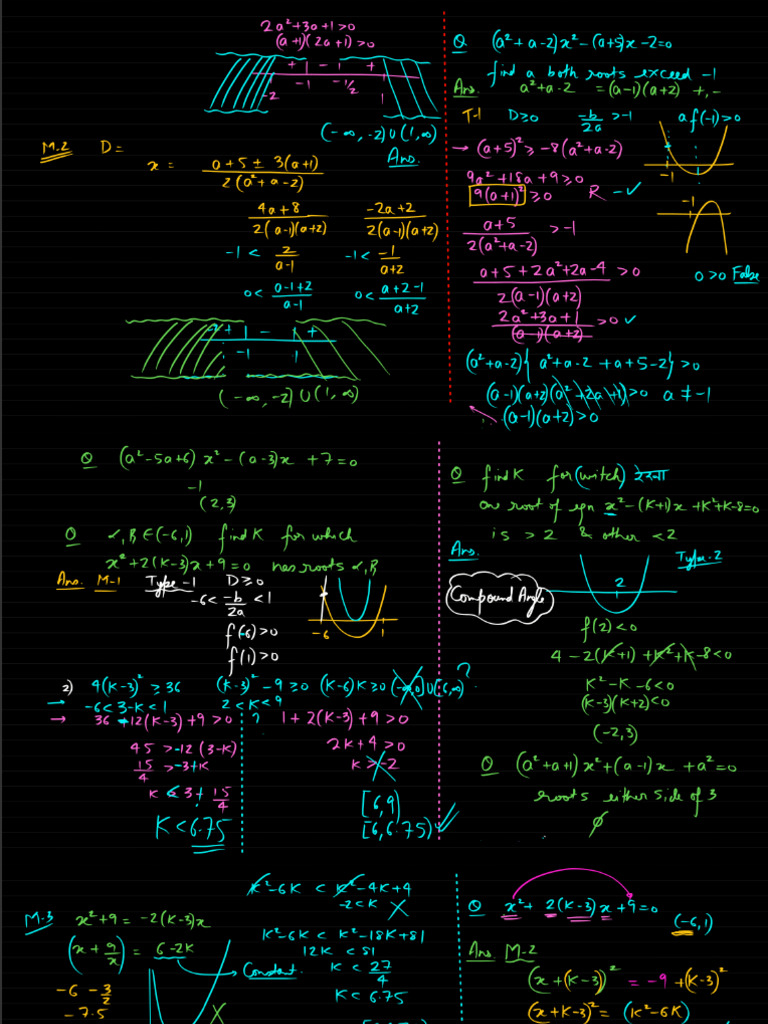 2a²+3a+1>0
(a+1)(2a+1)>0
+ | - | +
-2 -1 -½ 1
(-∞,-2)∪(1,∞)
Ans.
M-2 D=
x = a+5 ± 3(a+1) / 2(a²+a-2)
4a+8 / 2(a-1)(a+2) -2a+2 / 2(a-1)(a+2)
-1 < 2/a-1 -1 < -1/a+2
0 < a-1+2 / a-1 0 < a+2-1 / a+2
+ | - | +
-1 1
(-∞,-2)∪(1,∞)
Q (a²+a-2)x²-(a+5)x-2=0
find a both roots exceed -1
Ans. a²+a-2 = (a-1)(a+2) +,-
T-1 D≥0 -b/2a > -1 af(-1)>0
→ (a+5)² ≥ -8(a²+a-2)
9a²+18a+9≥0
9(a+1)² ≥0 R -✓
-1
-1
a+5 / 2(a²+a-2) > -1
a+5+2a²+2a-4 / 2(a-1)(a+2) > 0
0>0 False
2a²+3a+1 / (a-1)(a+2) >0 ✓
(a²+a-2){a²+a-2+a+5-2}>0
(a-1)(a+2)(a²+2a+1)>0 a≠-1
(a-1)(a+2)>0
Q (a²-5a+6)x²-(a-3)x+7=0
-1
(2,3)
Q α,β∈(-6,1) find K for which
x²+2(K-3)x+9=0 has roots α,β
Ans. M-1 Type-1 D≥0
-6 < -b/2a < 1
f(-6)>0
f(1)>0
-6 1
2) 4(K-3)² ≥ 36 (K-3)²-9≥0 (K-6)K≥0 (-∞,0]∪[6,∞) ?
→ -6<3-K<1 2<K<9
→ 36-12(K-3)+9>0 ? 1+2(K-3)+9>0
45>-12(3-K) 2K+4>0
15/4 >-3+K K>-2
K<3+15/4 [6,9)
K<6.75 [6,6.75) ✓
Q find K for (which)
one root of eqn x²-(K+1)x+K²+K-8=0
is >2 & other <2
Ans. Type-2
2
Compound Angle
f(2)<0
4-2(K+1)+K²+K-8<0
K²-K-6<0
(K-3)(K+2)<0
(-2,3)
Q (a²+a+1)x²+(a-1)x+a²=0
roots either side of 3
∅
K²-6K < K²-4K+4
-2K<K X
M-3 x²+9=-2(K-3)x
K²-6K < K²-18K+81
12K<81
(x+9/x) = 6-2K
→ Constant. K<27/4
K<6.75
-6-3/2
-7.5
Q x²+2(K-3)x+9=0
(-6,1)
Ans. M-2
(x+(K-3))² = -9+(K-3)²
(x+K-3)² = (K²-6K)